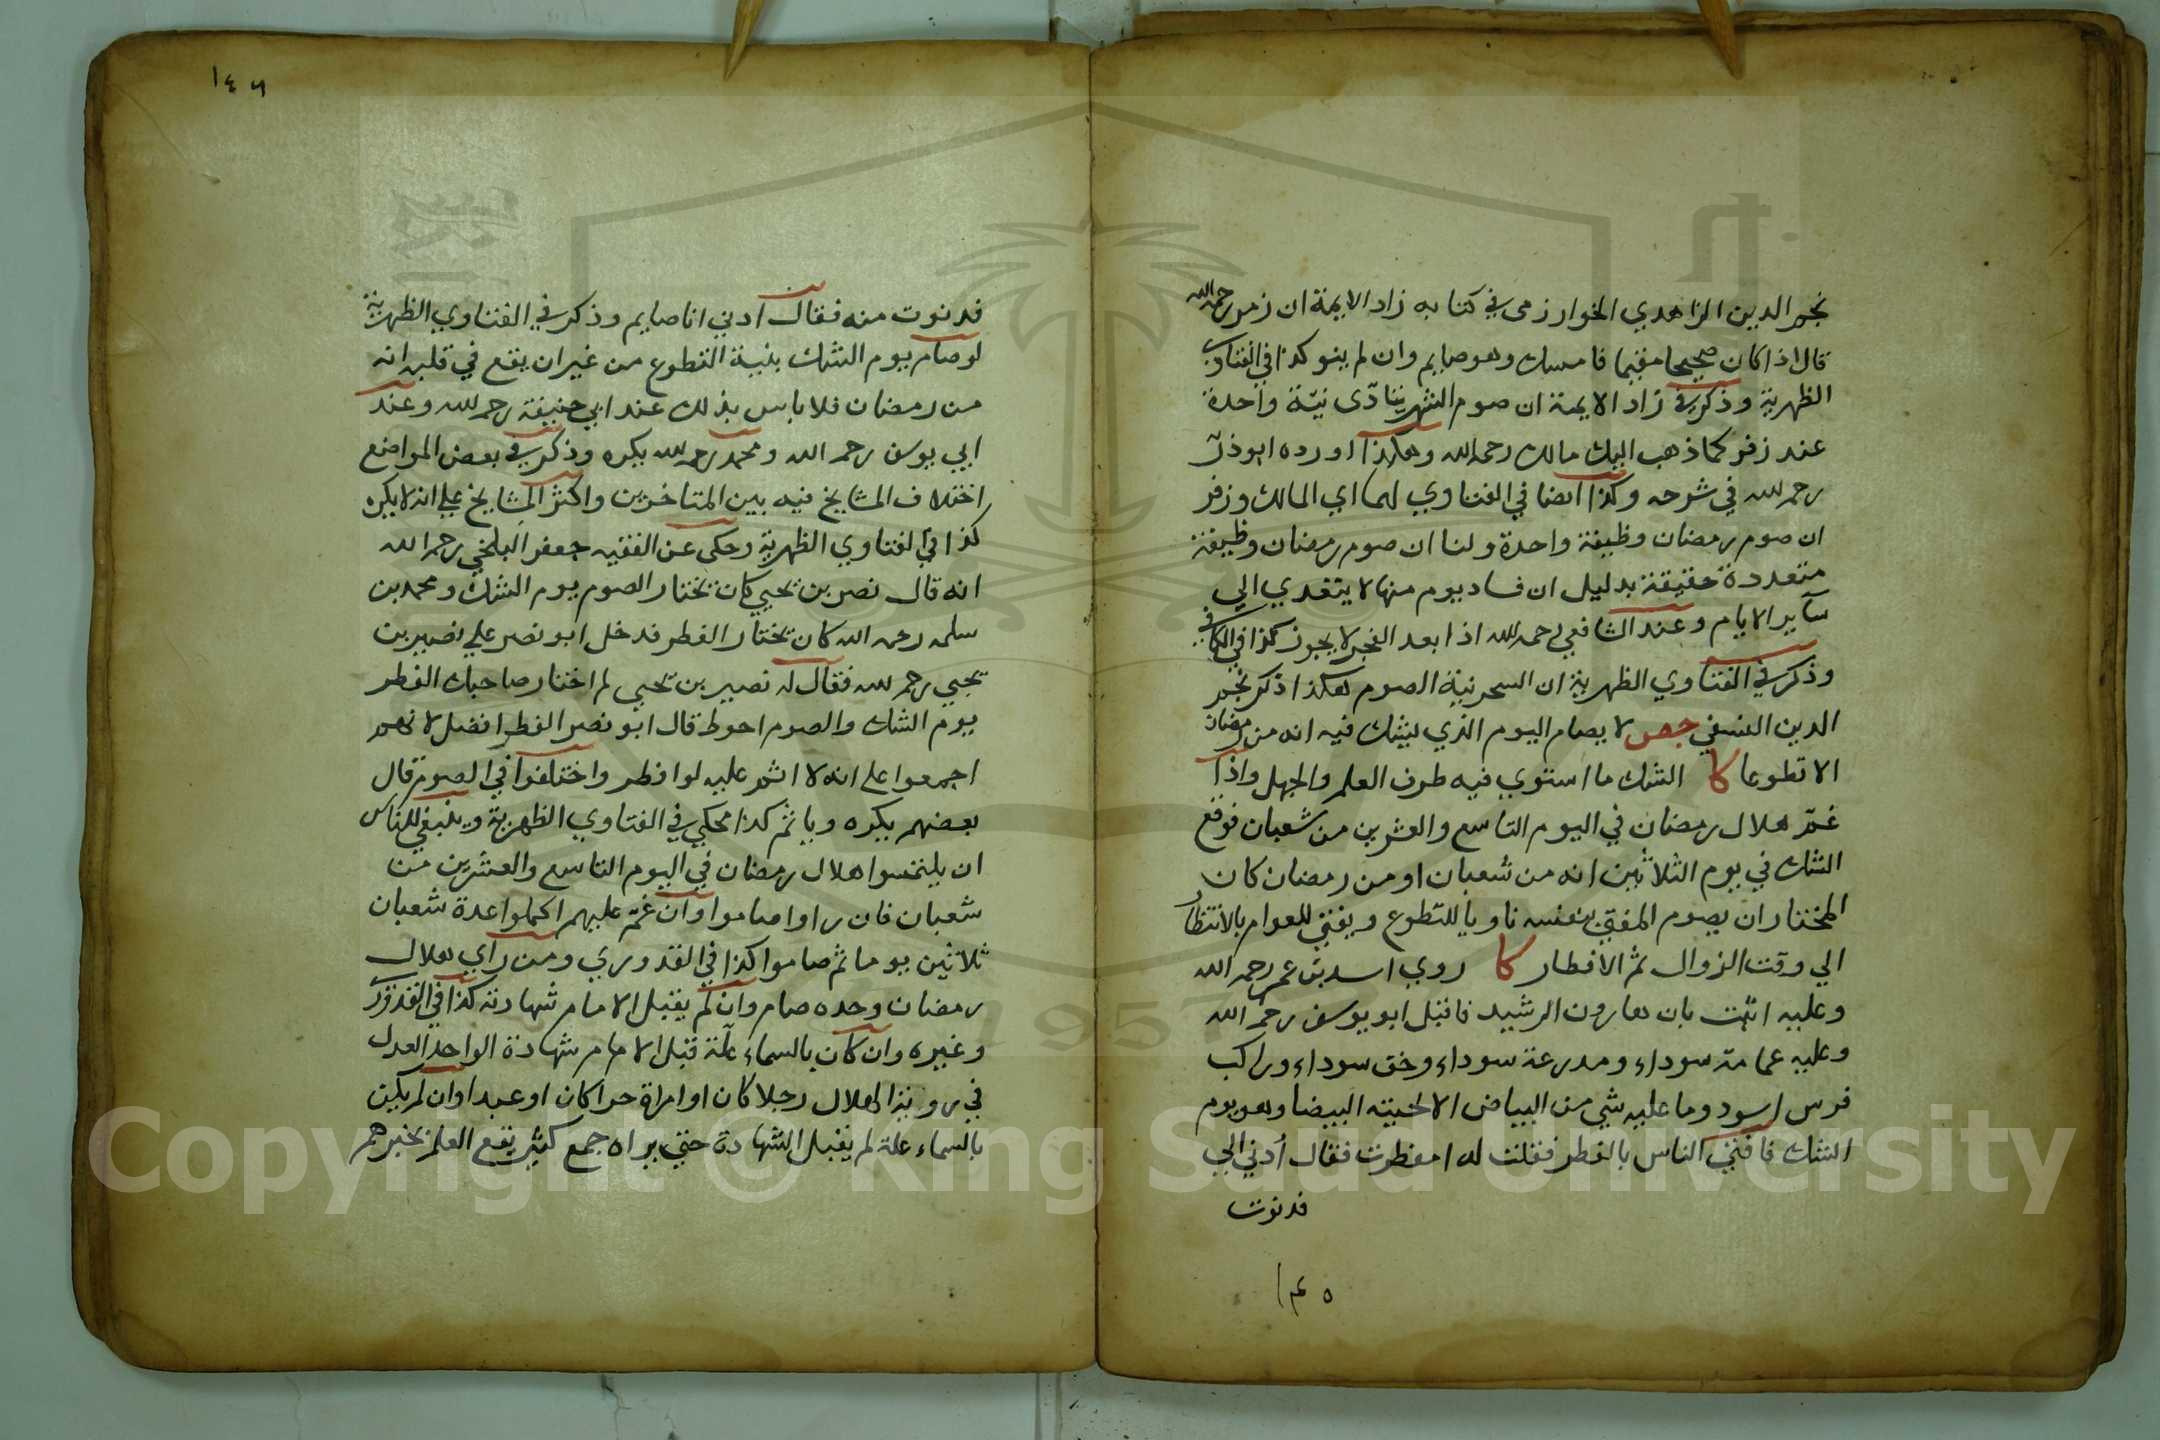 نجم الدين الزاهدي الخوارزمي في كتابه زاد الايمة ان زفر رحمه الله
قال اذا كان صحيحا مقيما فامسك وهو صايم وان لم ينو كذا في الفتاوي
الظهرية وذكر في زاد الايمة ان صوم الشهر يتادى بنية واحدة
عند زفر كما ذهب اليك مالك رحمه الله وهكذا اورده ابو ذر
رحمه الله في شرحه وكذا ايضا في الفتاوي لهما اي المالك وزفر
ان صوم رمضان وظيفة واحدة ولنا ان صوم رمضان وظيفة
متعددة حقيقة بدليل ان فساد يوم منها لا يتعدي الي
سآير الايام وعند الشافعي رحمه الله اذا بعد الفجر لا يجوز كذا في الكافي
وذكر في الفتاوي الظهرية ان السحر نية الصوم هكذا ذكر نجم
الدين النسفي جص لا يصام اليوم الذي يشك فيه انه من رمضان
الا تطوعا كا الشك ما استوي فيه طرف العلم والجهل واذا
غم هلال رمضان في اليوم التاسع والعشرين من شعبان فوقع
الشك في يوم الثلاثين انه من شعبان او من رمضان كان
المختار ان يصوم المفتي بنفسه ناويا للتطوع ويفتي للعوام بالانتظار
الي وقت الزوال ثم الافطار كا روي اسد بن عمر رحمه الله
وعليه اتيت بان هارون الرشيد فاقبل ابو يوسف رحمه الله
وعليه عمامة سوداء ومدرعة سوداء وخف سوداء وراكب
فرس اسود وما عليه شي من البياض الا لحيته البيضا وهو يوم
الشك فافتي الناس بالفطر فقلت له امفطرت فقال ادني الي
فدنوت
١٤٥
١٤٦
فدنوت منه فقال ادني انا صايم وذكر في الفتاوي الظهرية
لو صام يوم الشك بنية التطوع من غير ان يقع في قلبه انه
من رمضان فلا باس بذلك عند ابي حنيفة رحمه الله وعند
ابي يوسف رحمه الله ومحمد رحمه الله يكره وذكر في بعض المواضع
اختلاف المشايخ فيه بين المتاخرين واكثر المشايخ علي انه لا يكره
كذا في الفتاوي الظهرية وحكي عن الفقيه جعفر البلخي رحمه الله
انه قال نصر بن يحيي كان يختار الصوم يوم الشك ومحمد بن
سلمه رحمه الله كان يختار الفطر فدخل ابو نصر علي نصير بن
يحيي رحمه الله فقال له نصير بن يحيي لم اختار صاحبك الفطر
يوم الشك والصوم احوط قال ابو نصر الفطر افضل لانهم
اجمعوا علي انه لا اثم عليه لو افطر واختلفوا في الصوم قال
بعضهم يكره وياثم كذا محكي في الفتاوي الظهرية وينبغي للناس
ان يلتمسوا هلال رمضان في اليوم التاسع والعشرين من
شعبان فان راوا صاموا وان غم عليهم اكملوا عدة شعبان
ثلاثين يوما ثم صاموا كذا في القدوري ومن راي هلال
رمضان وحده صام وان لم يقبل الامام شهادته كذا في القدوري
وغيره وان كان بالسماء علة قبل الامام شهادة الواحد العدل
في روية الهلال رجلا كان او امراة حرا كان او عبدا وان لم يكن
بالسماء علة لم يقبل الشهادة حتي يراه جمع كثير يقع العلم بخبرهم
Copyright © King Saud University
195